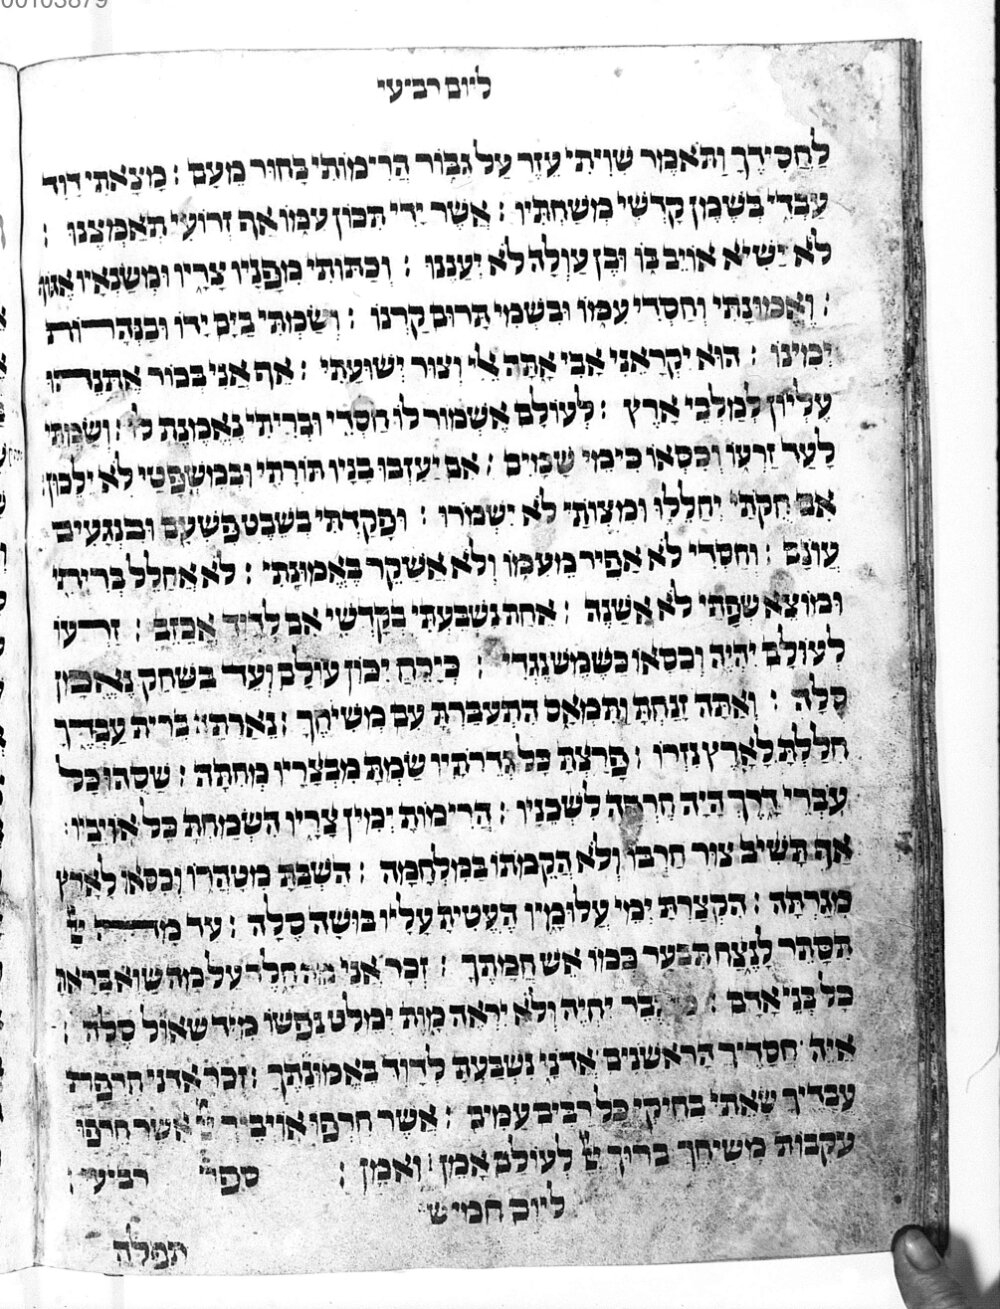 00103879
ליום רביעי
לַחֲסִידֶךָ וַתֹּאמֶר שִׁוִּיתִי עֵזֶר עַל גִּבּוֹר הֲרִימוֹתִי בָּחוּר מֵעָם : מָצָאתִי דָּוִד
עַבְדִּי בְּשֶׁמֶן קָדְשִׁי מְשַׁחְתִּיו : אֲשֶׁר יָדִי תִּכּוֹן עִמּוֹ אַף זְרוֹעִי תְאַמְּצֶנּוּ :
לֹא יַשִּׁיא אוֹיֵב בּוֹ וּבֶן עַוְלָה לֹא יְעַנֶּנּוּ : וְכַתּוֹתִי מִפָּנָיו צָרָיו וּמְשַׂנְאָיו אֶגּוֹף
: וֶאֱמוּנָתִי וְחַסְדִּי עִמּוֹ וּבִשְׁמִי תָּרוּם קַרְנוֹ : וְשַׂמְתִּי בַיָּם יָדוֹ וּבַנְּהָרוֹת
יְמִינוֹ : הוּא יִקְרָאֵנִי אָבִי אָתָּה אֵלִי וְצוּר יְשׁוּעָתִי : אַף אָנִי בְּכוֹר אֶתְּנֵהוּ
עֶלְיוֹן לְמַלְכֵי אָרֶץ : לְעוֹלָם אֶשְׁמוֹר לוֹ חַסְדִּי וּבְרִיתִי נֶאֱמֶנֶת לוֹ : וְשַׂמְתִּי
לָעַד זַרְעוֹ וְכִסְאוֹ כִּימֵי שָׁמָיִם : אִם יַעַזְבוּ בָנָיו תּוֹרָתִי וּבְמִשְׁפָּטַי לֹא יֵלֵכוּן :
אִם חֻקֹּתַי יְחַלֵּלוּ וּמִצְוֹתַי לֹא יִשְׁמֹרוּ : וּפָקַדְתִּי בְשֵׁבֶט פִּשְׁעָם וּבִנְגָעִים
עֲוֹנָם : וְחַסְדִּי לֹא אָפִיר מֵעִמּוֹ וְלֹא אֲשַׁקֵּר בֶּאֱמוּנָתִי : לֹא אֲחַלֵּל בְּרִיתִי
וּמוֹצָא שְׂפָתַי לֹא אֲשַׁנֶּה : אַחַת נִשְׁבַּעְתִּי בְקָדְשִׁי אִם לְדָוִד אֲכַזֵּב : זַרְעוֹ
לְעוֹלָם יִהְיֶה וְכִסְאוֹ כַשֶּׁמֶשׁ נֶגְדִּי : כְּיָרֵחַ יִכּוֹן עוֹלָם וְעֵד בַּשַּׁחַק נֶאֱמָן
סֶלָה : וְאַתָּה זָנַחְתָּ וַתִּמְאָס הִתְעַבַּרְתָּ עִם מְשִׁיחֶךָ : נֵאַרְתָּה בְּרִית עַבְדֶּךָ
חִלַּלְתָּ לָאָרֶץ נִזְרוֹ : פָּרַצְתָּ כָל גְּדֵרֹתָיו שַׂמְתָּ מִבְצָרָיו מְחִתָּה : שַׁסֻּהוּ כָּל
עֹבְרֵי דָרֶךְ הָיָה חֶרְפָּה לִשְׁכֵנָיו : הֲרִימוֹתָ יְמִין צָרָיו הִשְׂמַחְתָּ כָּל אוֹיְבָיו :
אַף תָּשִׁיב צוּר חַרְבּוֹ וְלֹא הֲקֵמֹתוֹ בַּמִּלְחָמָה : הִשְׁבַּתָּ מִטְּהָרוֹ וְכִסְאוֹ לָאָרֶץ
מִגַּרְתָּה : הִקְצַרְתָּ יְמֵי עֲלוּמָיו הֶעֱטִיתָ עָלָיו בּוּשָׁה סֶלָה : עַד מָה יְיָ
תִּסָּתֵר לָנֶצַח תִּבְעַר כְּמוֹ אֵשׁ חֲמָתֶךָ : זְכָר אֲנִי מֶה חָלֶד עַל מַה שָּׁוְא בָּרָאתָ
כָל בְּנֵי אָדָם : גֶבֶר יִחְיֶה וְלֹא יִרְאֶה מָּוֶת יְמַלֵּט נַפְשׁוֹ מִיַּד שְׁאוֹל סֶלָה :
אַיֵּה חֲסָדֶיךָ הָרִאשֹׁנִים אֲדֹנָי נִשְׁבַּעְתָּ לְדָוִד בֶּאֱמוּנָתֶךָ : זְכֹר אֲדֹנָי חֶרְפַּת
עֲבָדֶיךָ שְׂאֵתִי בְחֵיקִי כָּל רַבִּים עַמִּים : אֲשֶׁר חֵרְפוּ אוֹיְבֶיךָ יְיָ אֲשֶׁר חֵרְפוּ
עִקְּבוֹת מְשִׁיחֶךָ בָּרוּךְ יְיָ לְעוֹלָם אָמֵן וְאָמֵן : ספר רביעי :
ליום חמישי
תפלה